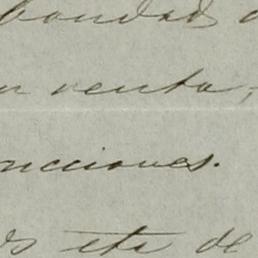 bondad d
n venta,
nciones.
os etc de